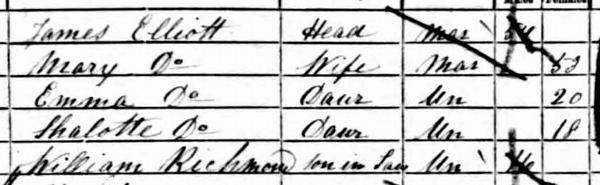 Males Females
James Elliott Head Mar 54
Mary Do Wife Mar 53
Emma Do Daur Un 20
Shalotte Do Daur Un 18
William Richmond son in Law Un